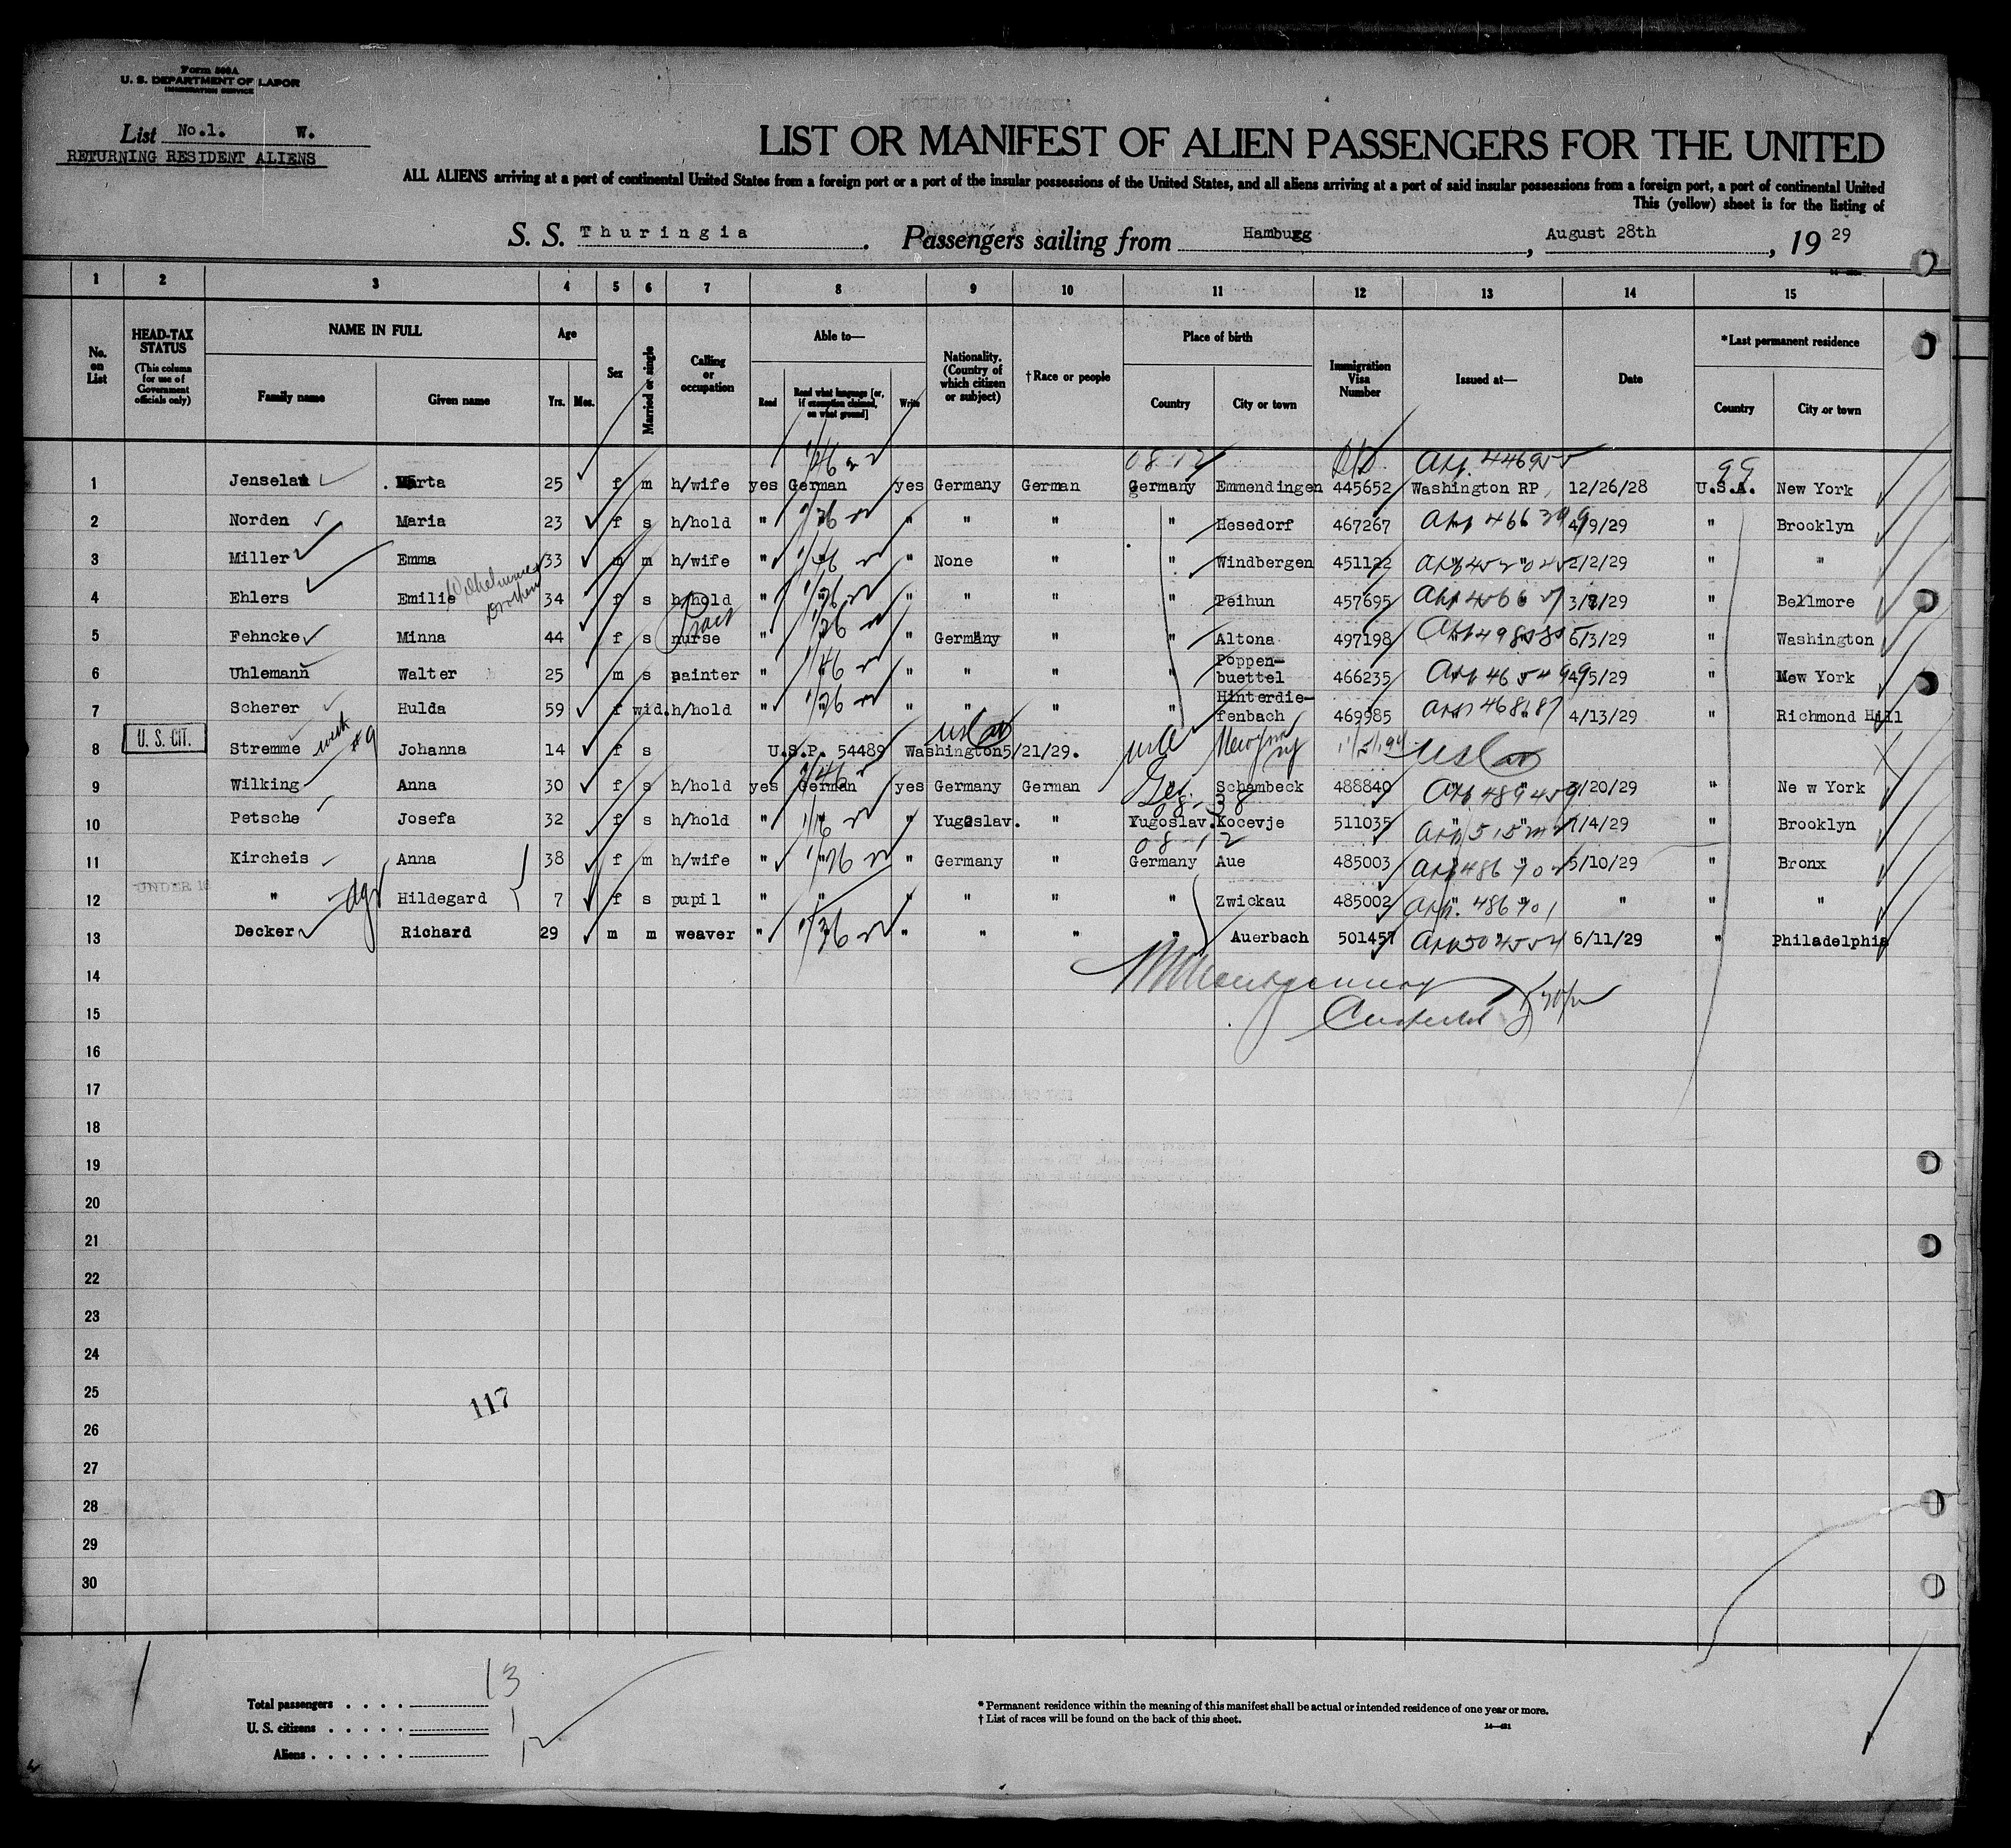 Form 500A
U. S. DEPARTMENT OF LABOR
IMMIGRATION SERVICE
List No.1. W.
RETURNING RESIDENT ALIENS
LIST OR MANIFEST OF ALIEN PASSENGERS FOR THE UNITED
ALL ALIENS arriving at a port of continental United States from a foreign port or a port of the insular possessions of the United States, and all aliens arriving at a port of said insular possessions from a foreign port, a port of continental United
This (yellow) sheet is for the listing of
S. S. Thuringia . Passengers sailing from Hamburg , August 28th , 19 29
1 2 3 4 5 6 7 8 9 10 11 12 13 14 15
No. on List
HEAD-TAX STATUS (This column for use of Government officials only)
NAME IN FULL Family name Given name
Age Yrs. Mos.
Sex
Married or single
Calling or occupation
Able to— Read Read what language [or, if exemption claimed, on what ground] Write
Nationality. (Country of which citizen or subject)
† Race or people
Place of birth Country City or town
Immigration Visa Number
Issued at—
Date
*Last permanent residence Country City or town
08-12 App. 446955 99
1 Marta 25 f m h/wife yes German yes Germany German Germany Emmendingen 445652 Washington RP 12/26/28 U.S.A. New York
2 Norden Maria 23 f s h/hold " " " " " " Hesedorf 467267 4/9/29 " Brooklyn
3 Miller Emma 33 m m h/wife " " " None " " Windbergen 451122 2/2/29 " "
4 Ehlers Emilie 34 f s h/hold " " " " " " 457695 " Bellmore
5 Fehncke Minna 44 f s nurse " " " Germany " " Altona 497198 6/3/29 " Washington
6 Uhlemann Walter 25 m s painter " " " " " " Poppen-buettel 466235 4/5/29 " New York
7 Scherer Hulda 59 f wid. h/hold " " " " " " Hinterdie-fenbach 469985 4/13/29 " Richmond Hill
8 U. S. CIT. Stremme Johanna 14 f s U.S.P. 54489 Washington 5/21/29.
9 Wilking Anna 30 f s h/hold yes German yes Germany German " Schambeck 488840 " Ne w York
10 Petsche Josefa 32 f s h/hold " " " Yugoslav. " Yugoslav. Kocevje 511035 " Brooklyn
11 Kircheis Anna 38 f m h/wife " " " Germany " Germany Aue 485003 5/10/29 " Bronx
12 UNDER 16 " Hildegard 7 f s pupil " " " " " " Zwickau 485002 " " " "
13 Decker Richard 29 m m weaver " " " " " " Auerbach 501457 6/11/29 " Philadelphia
14
15
16
17
18
19
20
21
22
23
24
25
117
26
27
28
29
30
Total passengers . . . . 13
U. S. citizens . . . . . 1
Aliens . . . . . . 12
* Permanent residence within the meaning of this manifest shall be actual or intended residence of one year or more.
† List of races will be found on the back of this sheet.